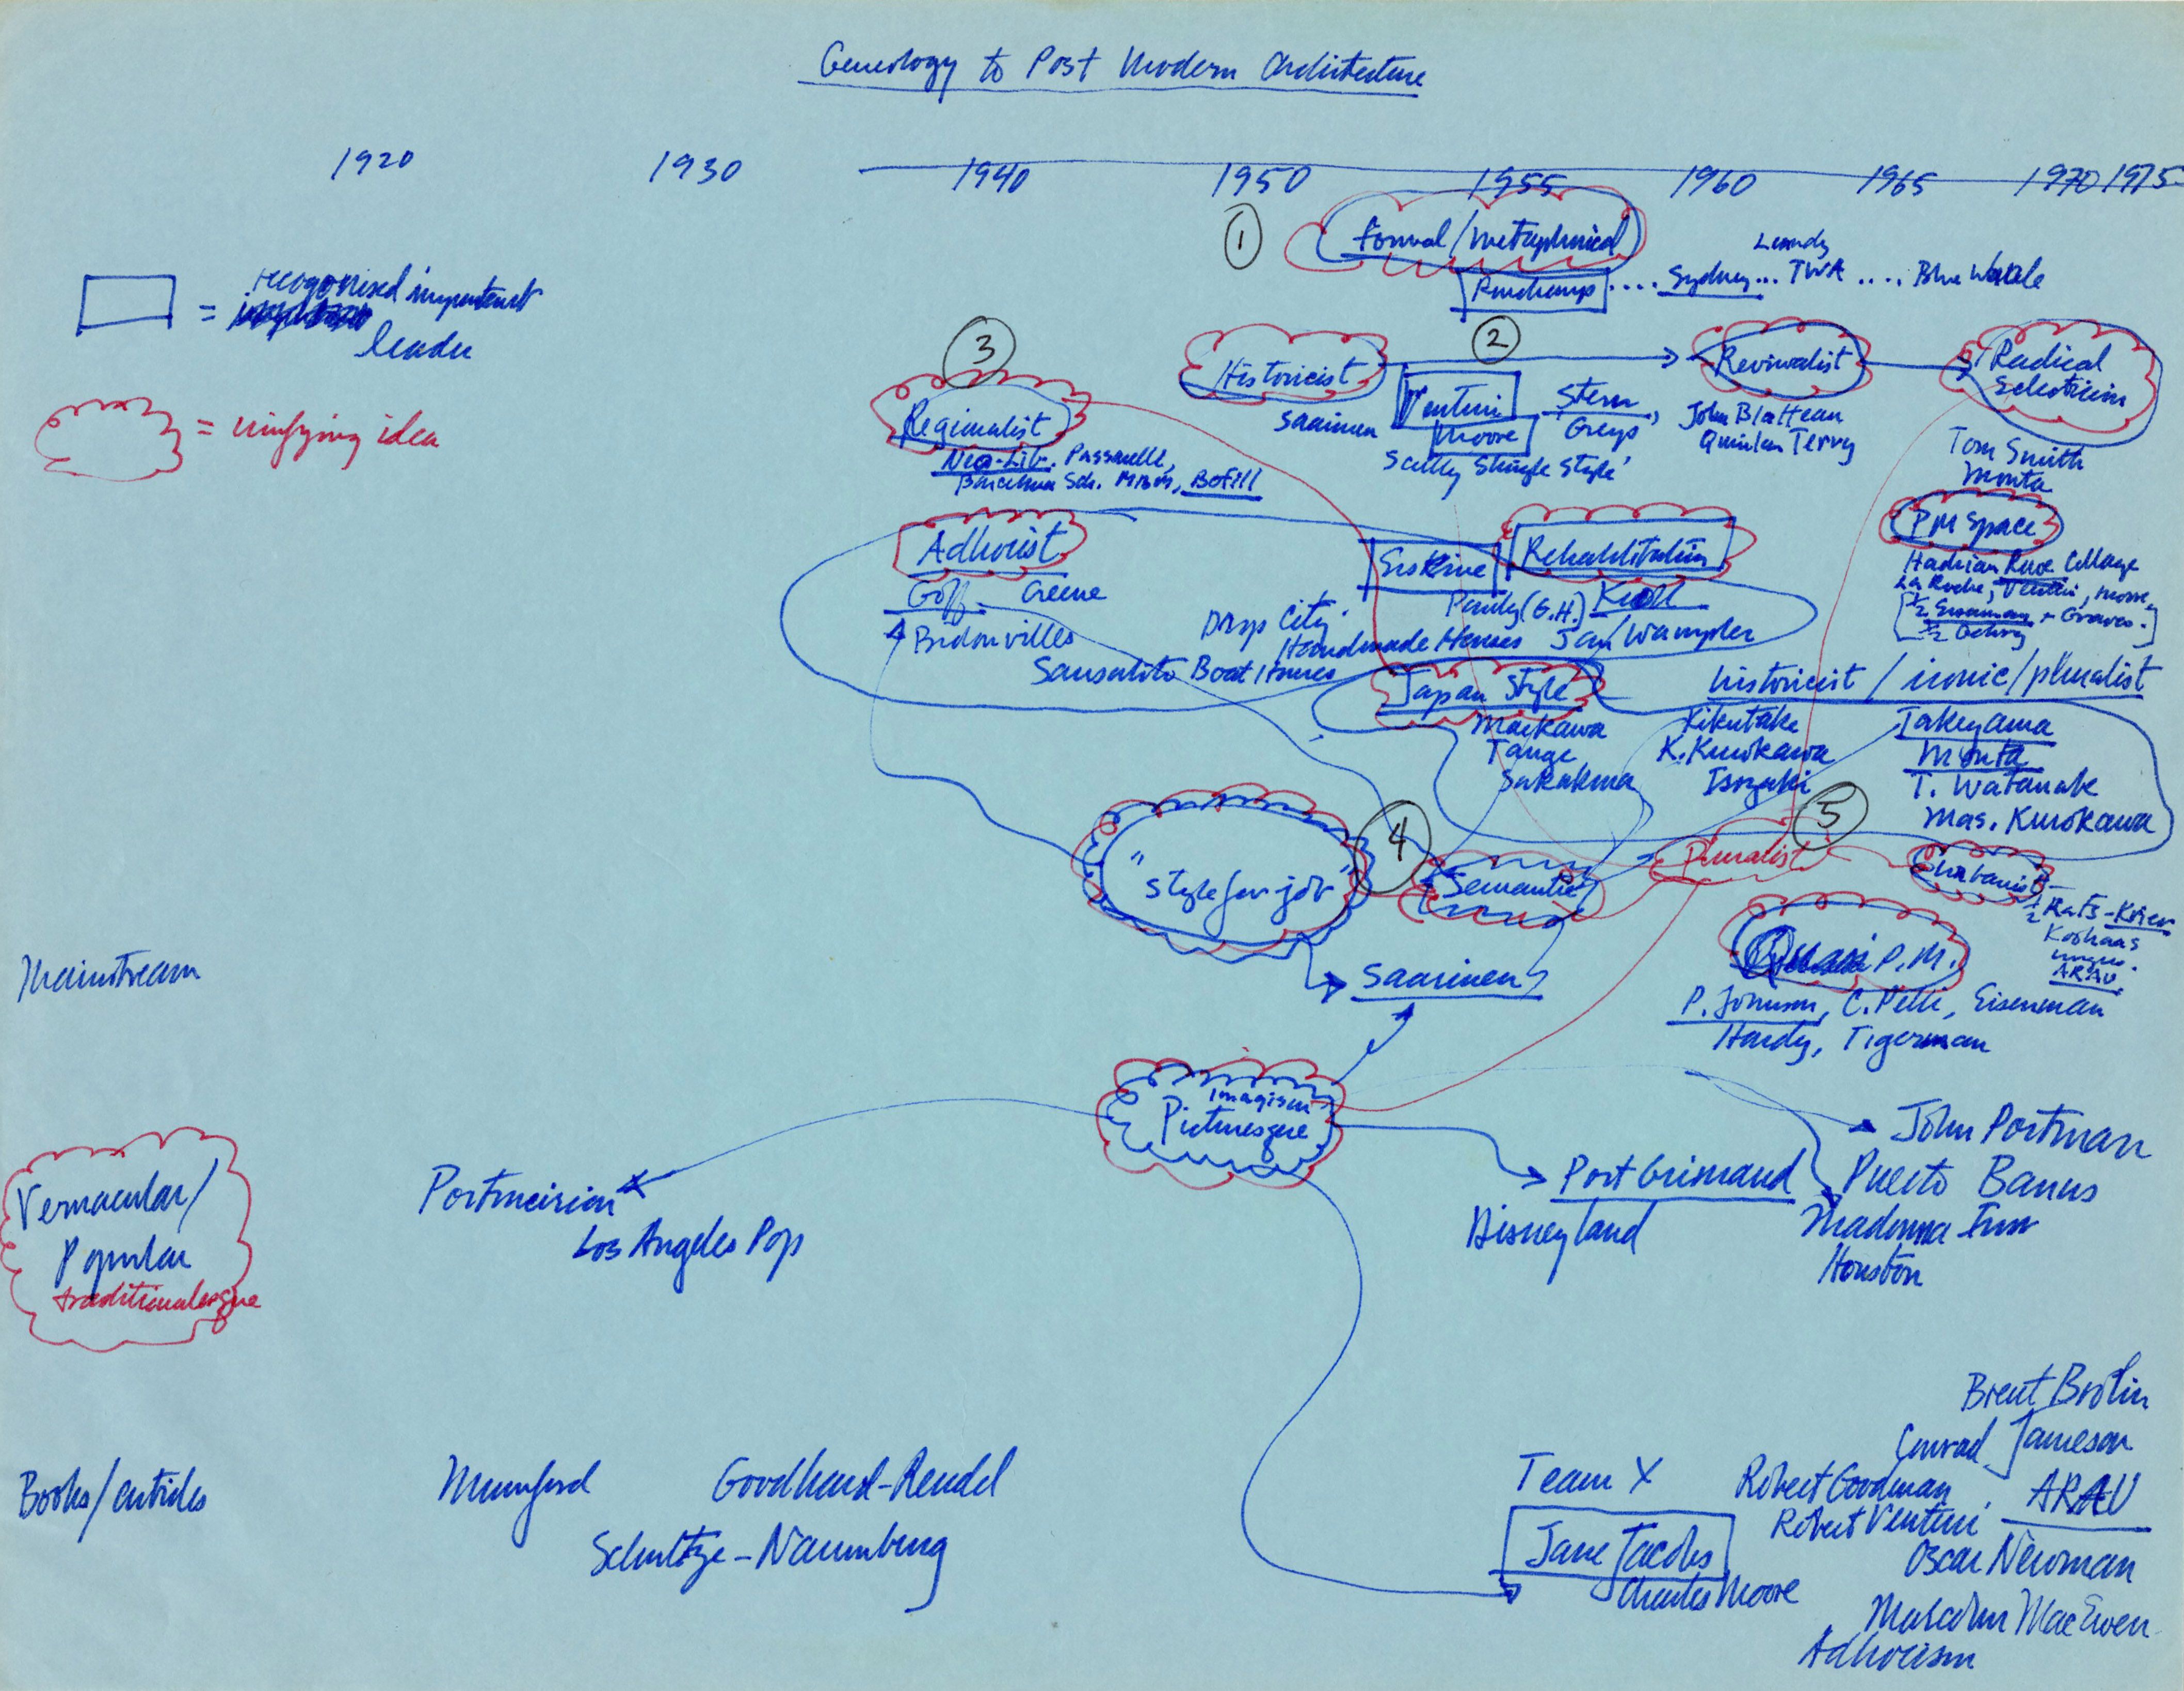 Geneology to Post Modern Architecture
1920 1930 1940 1950 1955 1960 1965 1970 1975
= recognised important
leader
= unifying idea
1
Formal/metaphorical
Ronchamp .... Sydney ... TWA .... Blue Whale
3
Regionalist
Neo-Lib. Passarelle,
Barcelona Sch. MBM, Bofill
Historicist
Saarinen
2
Venturi
Moore
Stern
Greys
Scully Shingle Style
Revivalist
John Blatteau
Quinlan Terry
Radical
Eclecticism
Tom Smith
Monta
PM Space
Hadrian Rowe Collage
La Roche, Venturi, Moore,
1/2 Eisenman + Graves.
1/2 Gehry
Adhocist
Goff Greene
Bidonvilles
Erskine
Rehabilitation
Pauly (G.H.) Kroll
Drop City
Handmade Houses Jan Wampler
Sausalito Boat Houses
Japan Style
Maekawa
Tange
Sakakura
historicist / ironic / pluralist
Kikutake
K. Kurokawa
Isozaki
Takeyama
Monta
T. Watanabe
Mas. Kurokawa
"style for job"
4
Semantic
5
Pluralist
Urbanist
1/2 Rats-Krier
Koolhaas
Ungers.
ARAU
Quasi P.M.
P. Johnson, C. Pelli, Eisenman
Hardy, Tigerman
Mainstream
Saarinen
Imagism
Picturesque
Vernacular/
Popular
traditionalesque
Portmeirion
Los Angeles Pop
Port Grimaud
Disneyland
John Portman
Puerto Banus
Madonna Inn
Houston
Books/articles
Mumford
Goodhard-Rendel
Schultze-Naumburg
Team X
Jane Jacobs
Charles Moore
Brent Brolin
Conrad Jameson
Robert Goodman
ARAU
Robert Venturi
Oscar Newman
Malcolm MacEwen
Adhocism